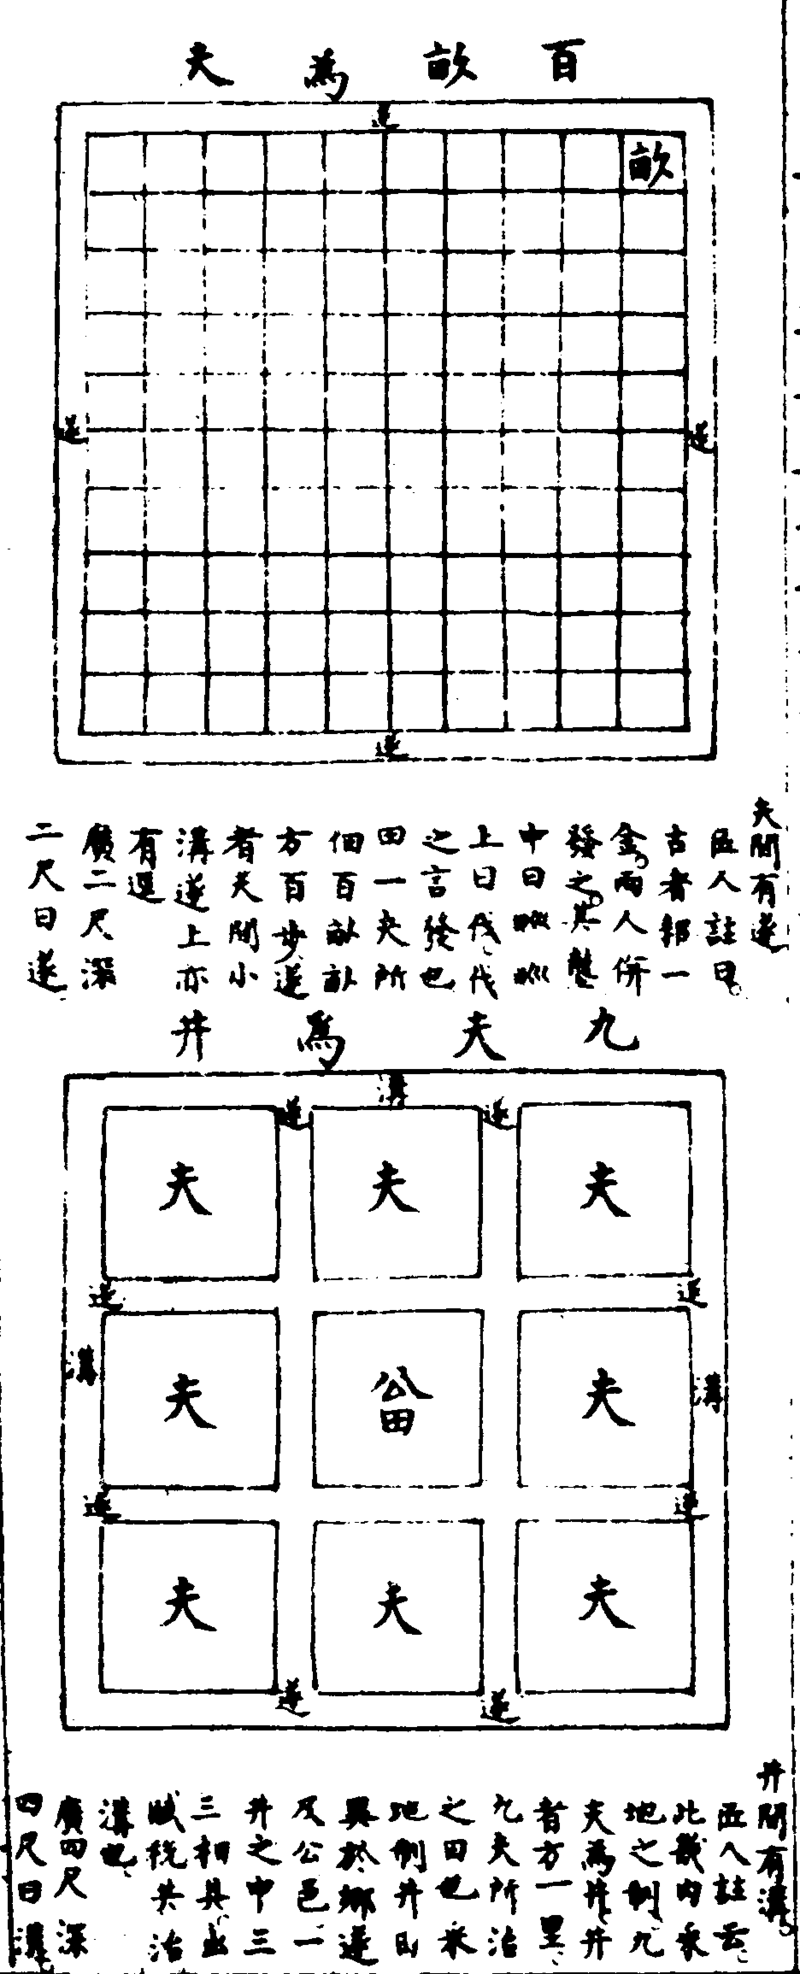 百畝爲夫
遂
畝
遂
遂
遂
夫間有遂
匠人註曰
古者耜一
金兩人併
發之其壟
中曰畎畎
上曰伐伐
之言發也
田一夫所
佃百畝畝
方百步遂
者夫間小
溝遂上亦
有逕
廣二尺深
二尺曰遂
九夫爲井
溝
遂
遂
夫
夫
夫
遂
遂
夫
公田
夫
溝
溝
遂
遂
夫
夫
夫
遂
遂
井間有溝
匠人註云
此畿内采
地之制九
夫爲井井
者方一里
九夫所治
之田也采
地制井田
異於鄉遂
及公邑一
井之中三
三相具出
賦稅共治
溝也
廣四尺深
四尺曰溝